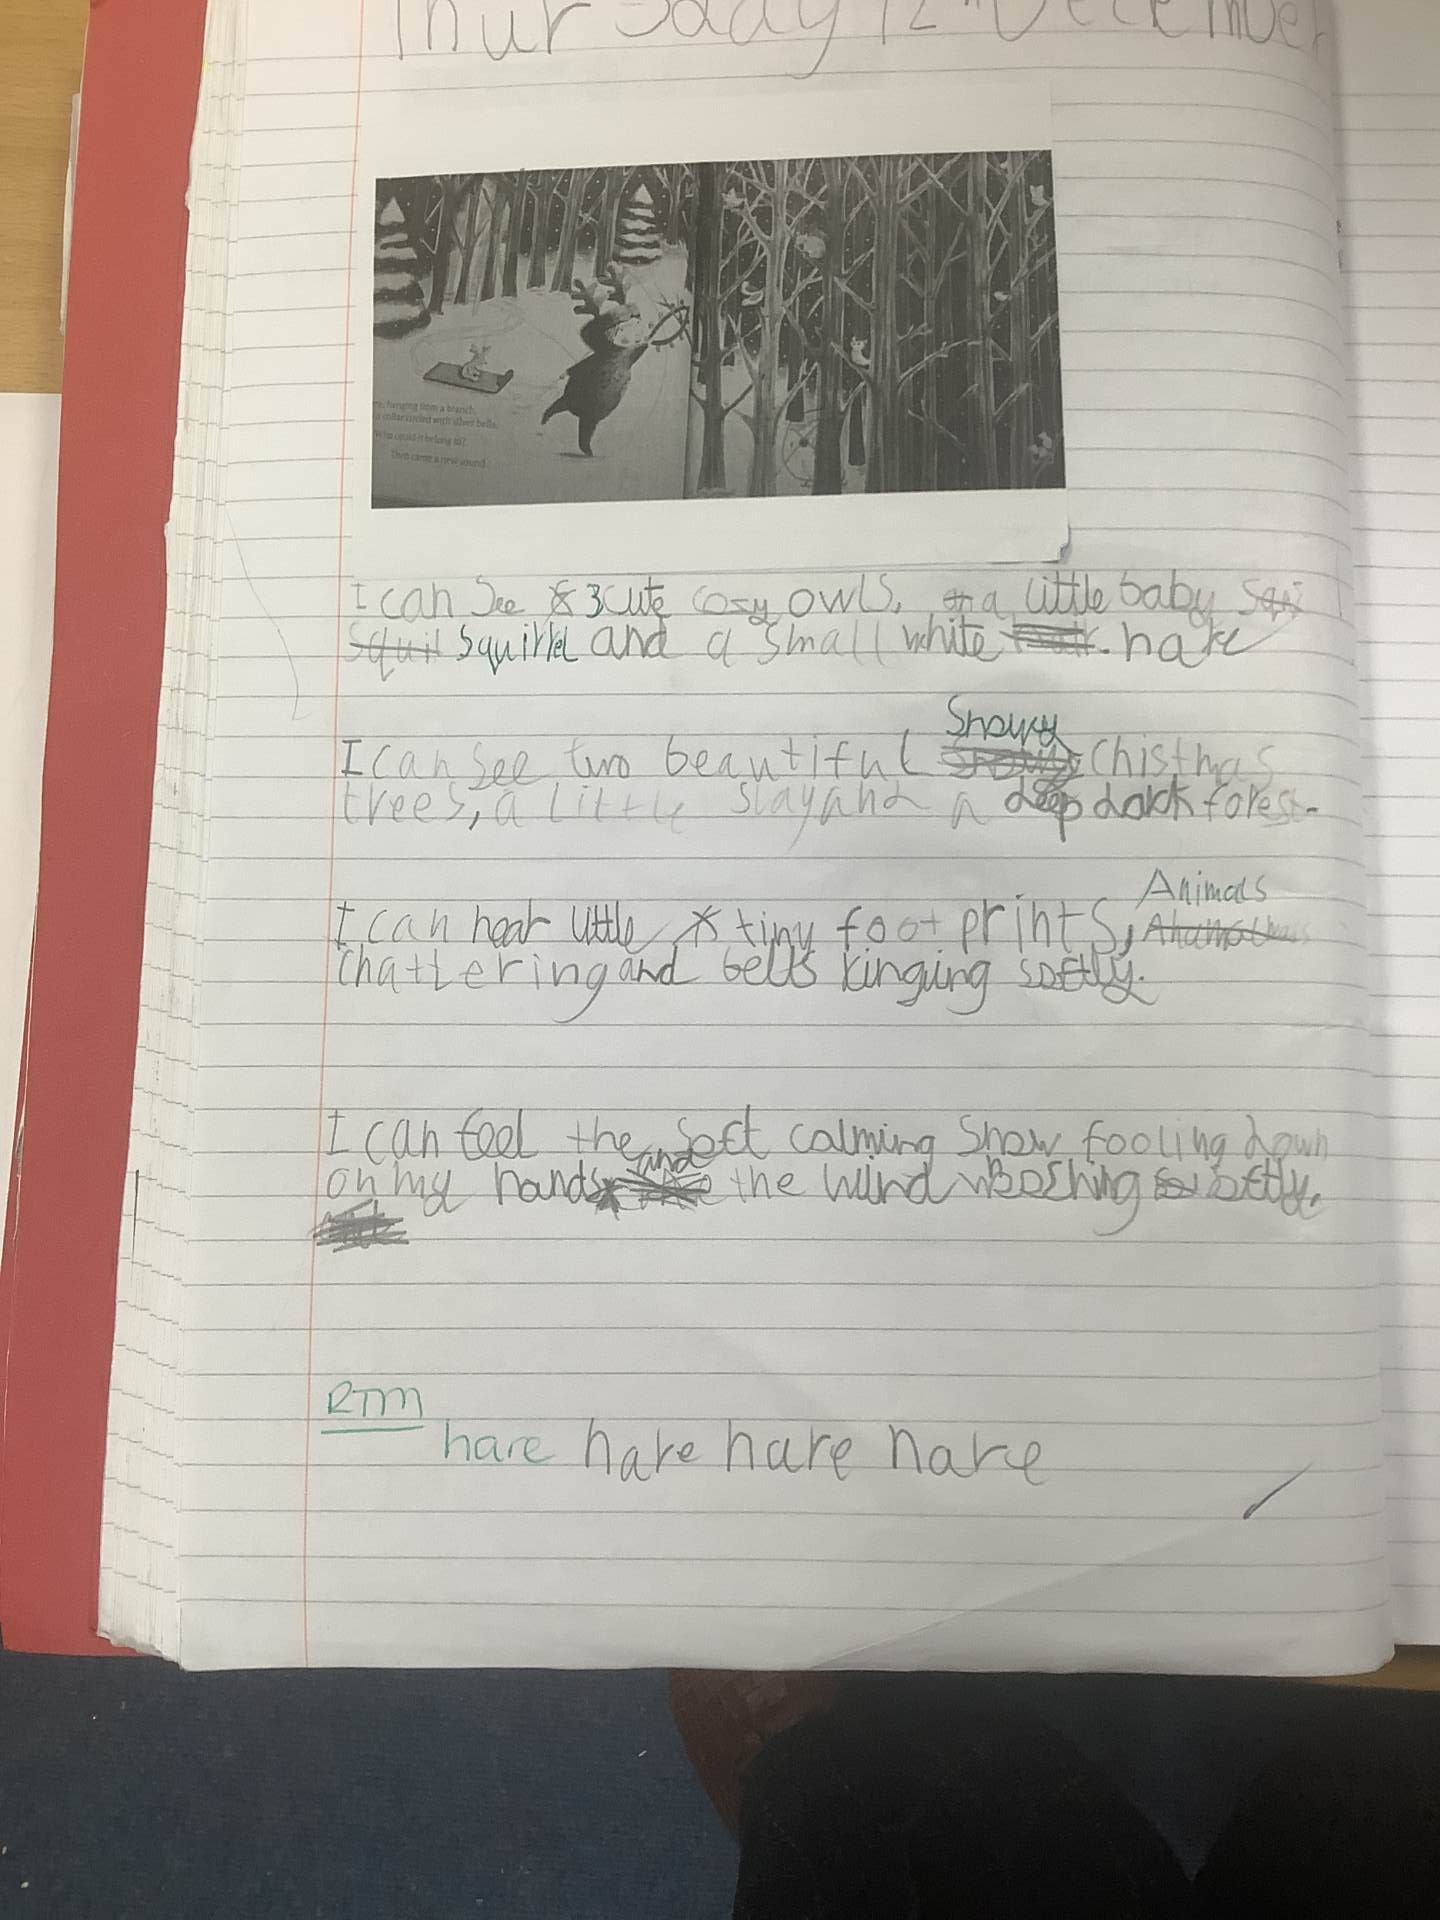 Thursday 12th December
hanging from a branch,
a collar circled with silver bells.
Who could it belong to?
Then came a new sound
I can see 3 cute cosy owls, a little baby
squirrel and a small white hare
Snowy
I can see two beautiful chistmas
trees, a little slay and a deep dark forest.
Animals
I can hear little tiny foot prints,
chattering and bells ringing softly.
I can feel the soft calming snow fooling down
and
on my hands the wind softly.
RTM
hare hare hare hare